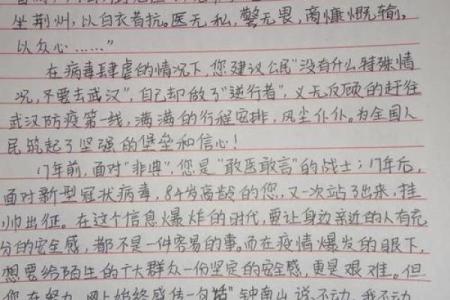 坐荆州，以白衣者抗。医无私，警无畏，商慷慨输，
以众心……”
在病毒肆虐的情况下，您建议公民“没有什么特殊情
况，不要去武汉”，自己却做了“逆行者”，义无反顾的赶往
武汉防疫第一线，满满的行程安排，风尘仆仆。为全国人
民筑起了坚强的堡垒和信心！
17年前，面对“非典”，您是“敢医敢言”的战士；17年后，
面对新型冠状病毒，84岁高龄的您，又一次站了出来，挂
帅出征。在这个信息爆炸的时代，要让身边亲近的人有充
分的安全感，都不是一件容易的事。而在疫情爆发的眼下，
想要给陌生的十大群众一份坚定的安全感，更是艰难。但